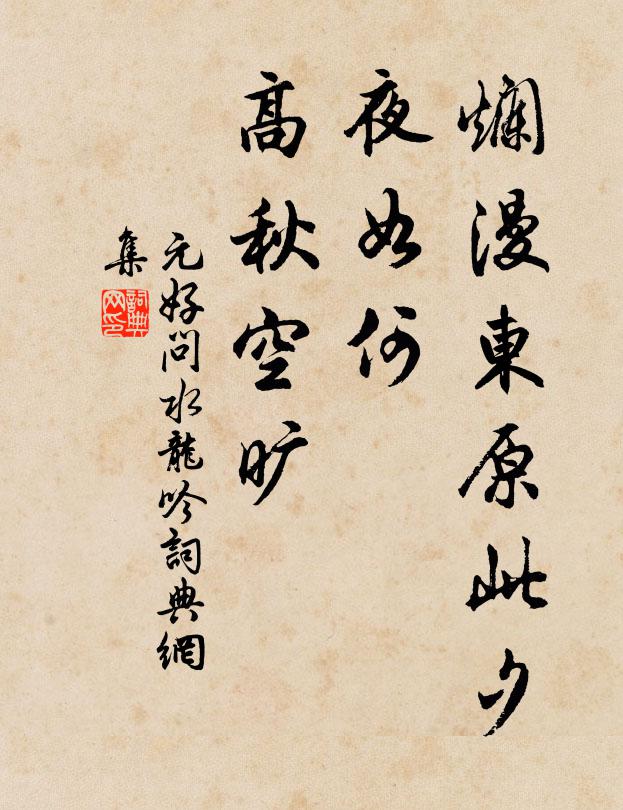 爛漫東原此夕
夜如何
高秋空曠
元好問水龍吟詞典網
集
詞典
网印